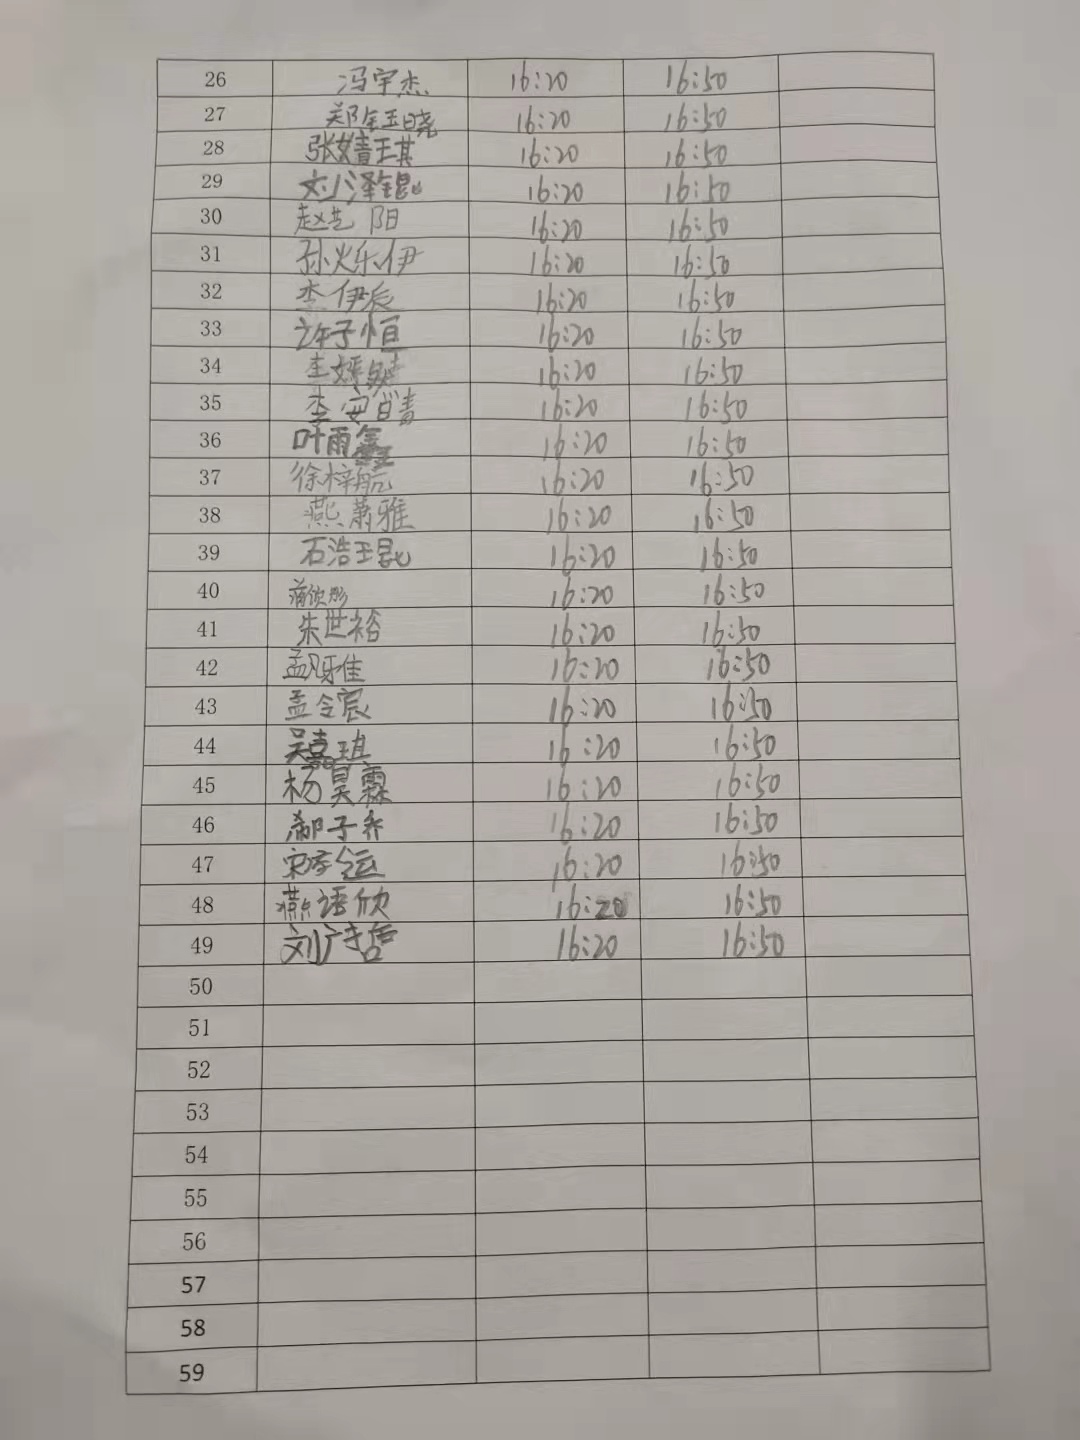 26 冯宇杰 16:20 16:50
27 郑钰晓 16:20 16:50
28 张婧琪 16:20 16:50
29 刘泽锟 16:20 16:50
30 赵 阳 16:20 16:50
31 孙烁伊 16:20 16:50
32 李伊辰 16:20 16:50
33 许子恒 16:20 16:50
34 16:20 16:50
35 李安 16:20 16:50
36 叶雨鑫 16:20 16:50
37 徐梓航 16:20 16:50
38 燕萧雅 16:20 16:50
39 石浩琨 16:20 16:50
40 16:20 16:50
41 朱世裕 16:20 16:50
42 孟凡雅 16:20 16:50
43 孟令宸 16:20 16:50
44 吴嘉琪 16:20 16:50
45 杨昊霖 16:20 16:50
46 郝子乔 16:20 16:50
47 宋 运 16:20 16:50
48 燕语欣 16:20 16:50
49 刘 哲 16:20 16:50
50
51
52
53
54
55
56
57
58
59